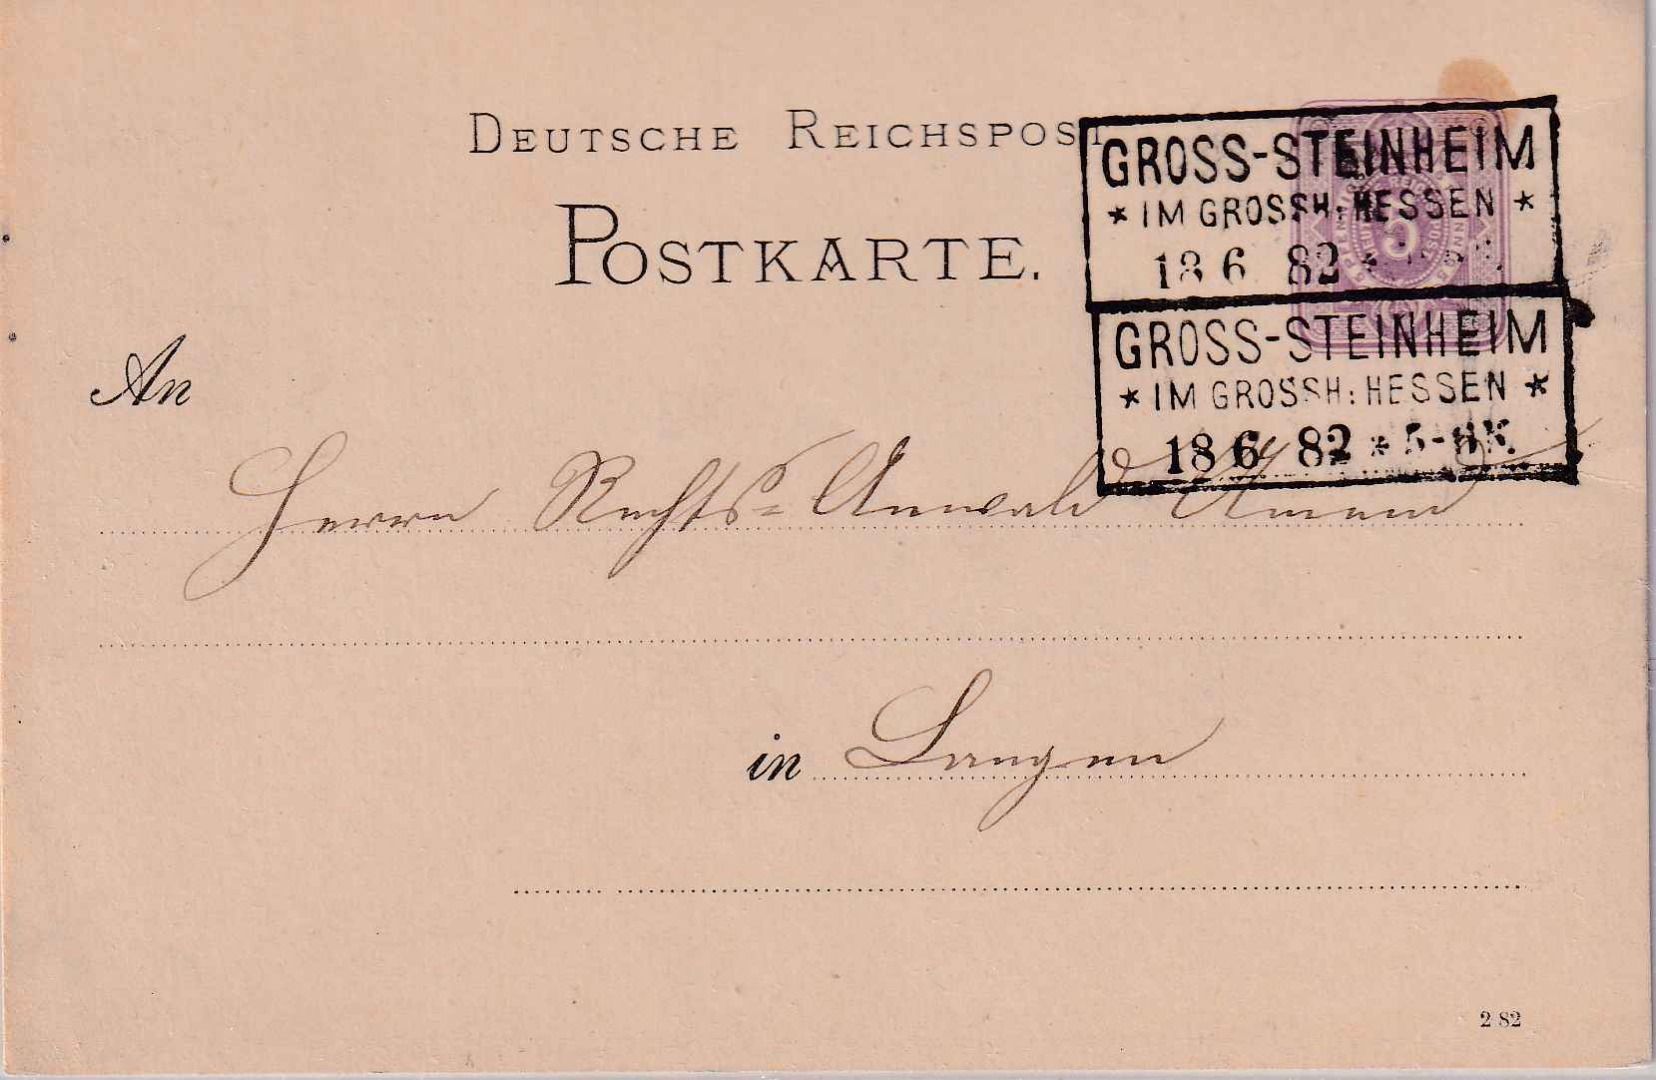 DEUTSCHE REICHSPOST
POSTKARTE.
GROSS-STEINHEIM
* IM GROSSH: HESSEN *
18 6 82
GROSS-STEINHEIM
* IM GROSSH: HESSEN *
18 6 82 * 5-
5
An
Herrn Rechts=Anwald
in Langen
2 82